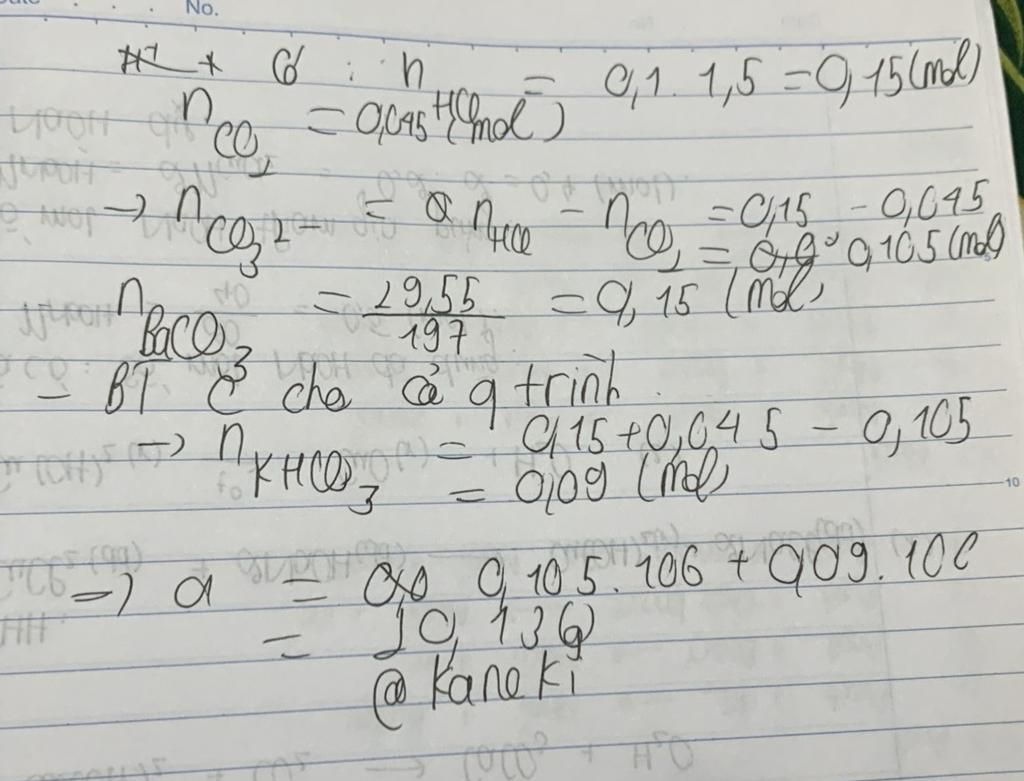 No.
* Có : n HCl = 0,1 . 1,5 = 0,15 (mol)
n CO2 = 0,045 (mol)
→ n CO3 2- = n HCl - n CO2 = 0,15 - 0,045
= 0,105 (mol)
n BaCO3 = 29,55 / 197 = 0,15 (mol)
- BT C cho cả q trình
→ n KHCO3 = 0,15 + 0,045 - 0,105
= 0,09 (mol)
10
=) a = 0,105 . 106 + 0,09 . 100
= 20,13 (g)
@ Kaneki